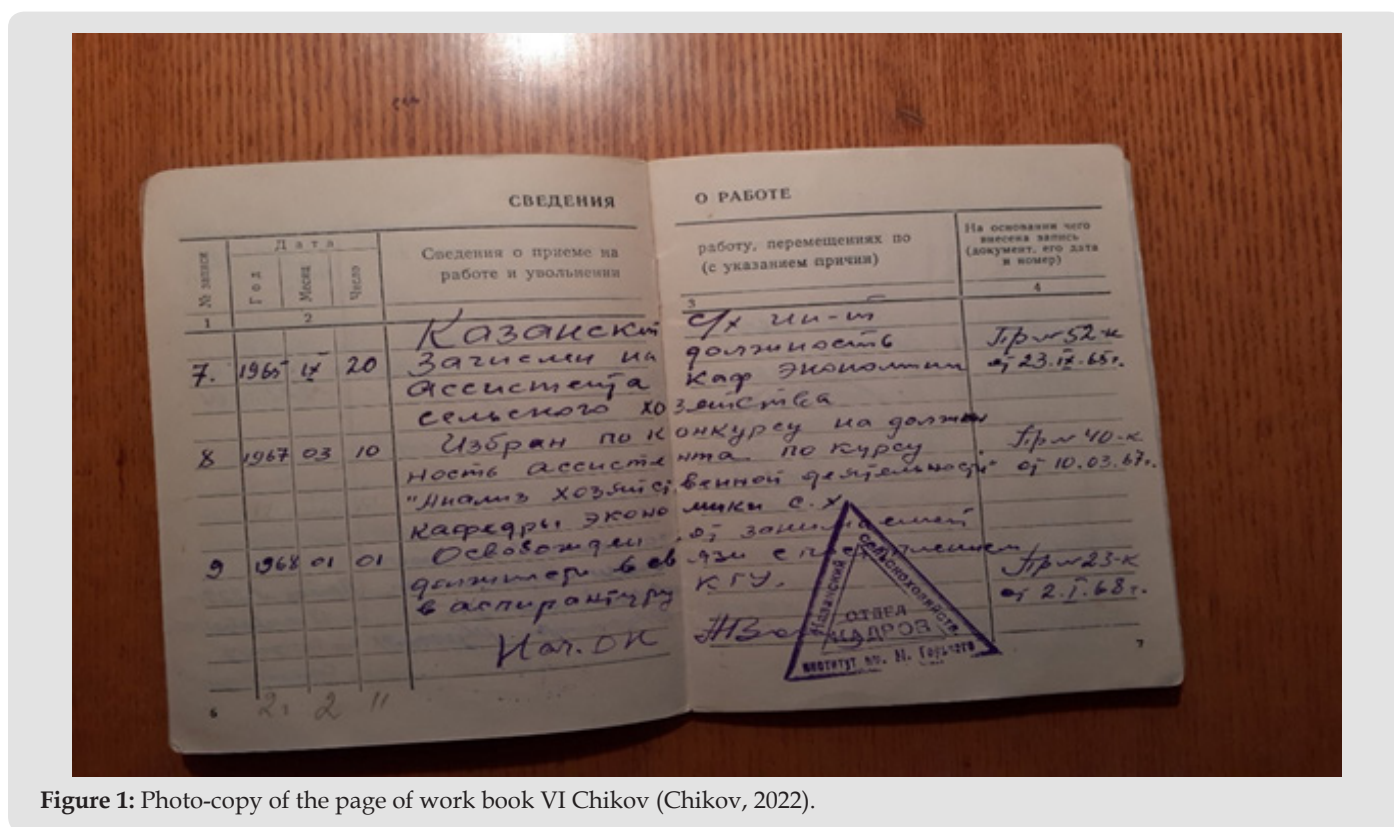 СВЕДЕНИЯ О РАБОТЕ
№ записи
Дата
Год
Месяц
Число
Сведения о приеме на работу, перемещениях по
работе и увольнении (с указанием причин)
На основании чего
внесена запись
(документ, его дата
и номер)
1 2 3 4
Казанский с/х ин-т
7. 1965 IX 20 Зачислен на должность Пр № 52-к
ассистента каф экономики от 23.IX.65г.
сельского хозяйства
8 1967 03 10 Избран по конкурсу на должн Пр № 40-к
ность ассистента по курсу от 10.03.67г.
"Анализ хозяйственной деятельности"
кафедры экономики с.х
9 1968 01 01 Освобожден от занимаемой
должности в связи с поступлением Пр № 23-к
в аспирантуру КГУ. от 2.I.68г.
Нач. ОК
Казанский
сельскохозяйств
ОТДЕЛ
КАДРОВ
институт им. М. Горького
6
2 11
7
Figure 1: Photo-copy of the page of work book VI Chikov (Chikov, 2022).